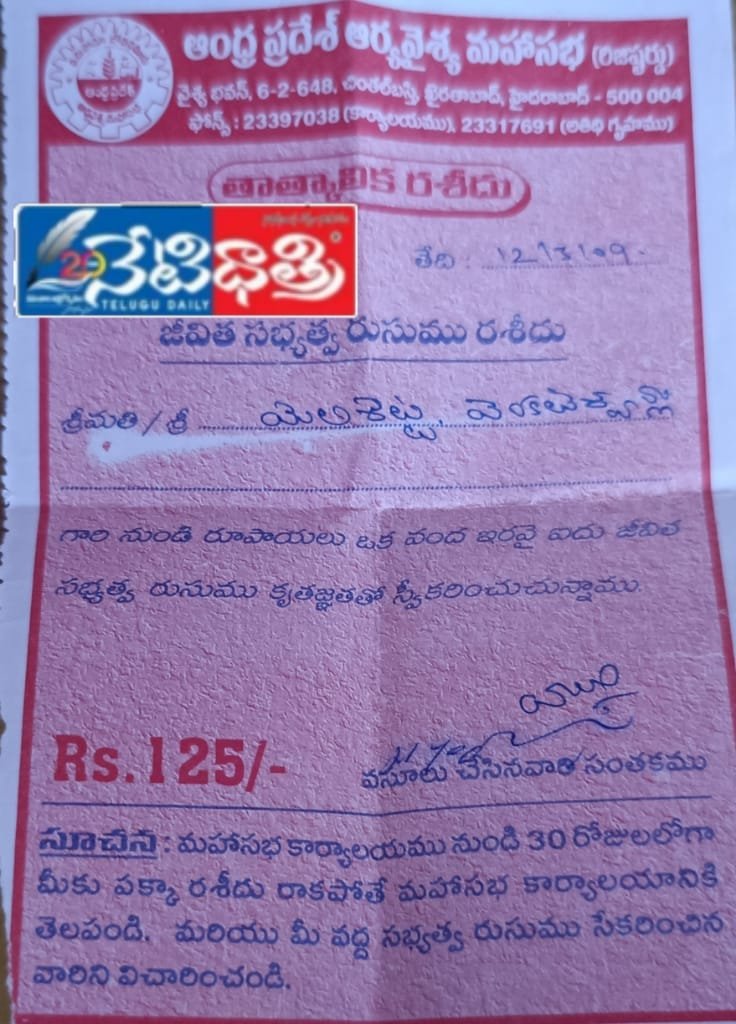 ఆంధ్ర ప్రదేశ్ ఆర్యవైశ్య మహాసభ (రిజిష్టర్డు)
వైశ్య భవన్, 6-2-648, చింతల్‌బస్తీ, ఖైరతాబాద్, హైదరాబాద్ - 500 004
ఫోన్స్ : 23397038 (కార్యాలయము), 23317691 (అతిథి గృహము)
తాత్కాలిక రశీదు
నేటిధాత్రి
TELUGU DAILY
తేది : 12/3/09
జీవిత సభ్యత్వ రుసుము రశీదు
శ్రీమతి / శ్రీ
గారి నుండి రూపాయలు ఒక వంద ఇరవై ఐదు జీవిత
సభ్యత్వ రుసుము కృతజ్ఞతతో స్వీకరించుచున్నాము.
Rs. 125/-
వసూలు చేసినవారి సంతకము
సూచన : మహాసభ కార్యాలయము నుండి 30 రోజులలోగా
మీకు పక్కా రశీదు రాకపోతే మహాసభ కార్యాలయానికి
తెలపండి. మరియు మీ వద్ద సభ్యత్వ రుసుము సేకరించిన
వారిని విచారించండి.